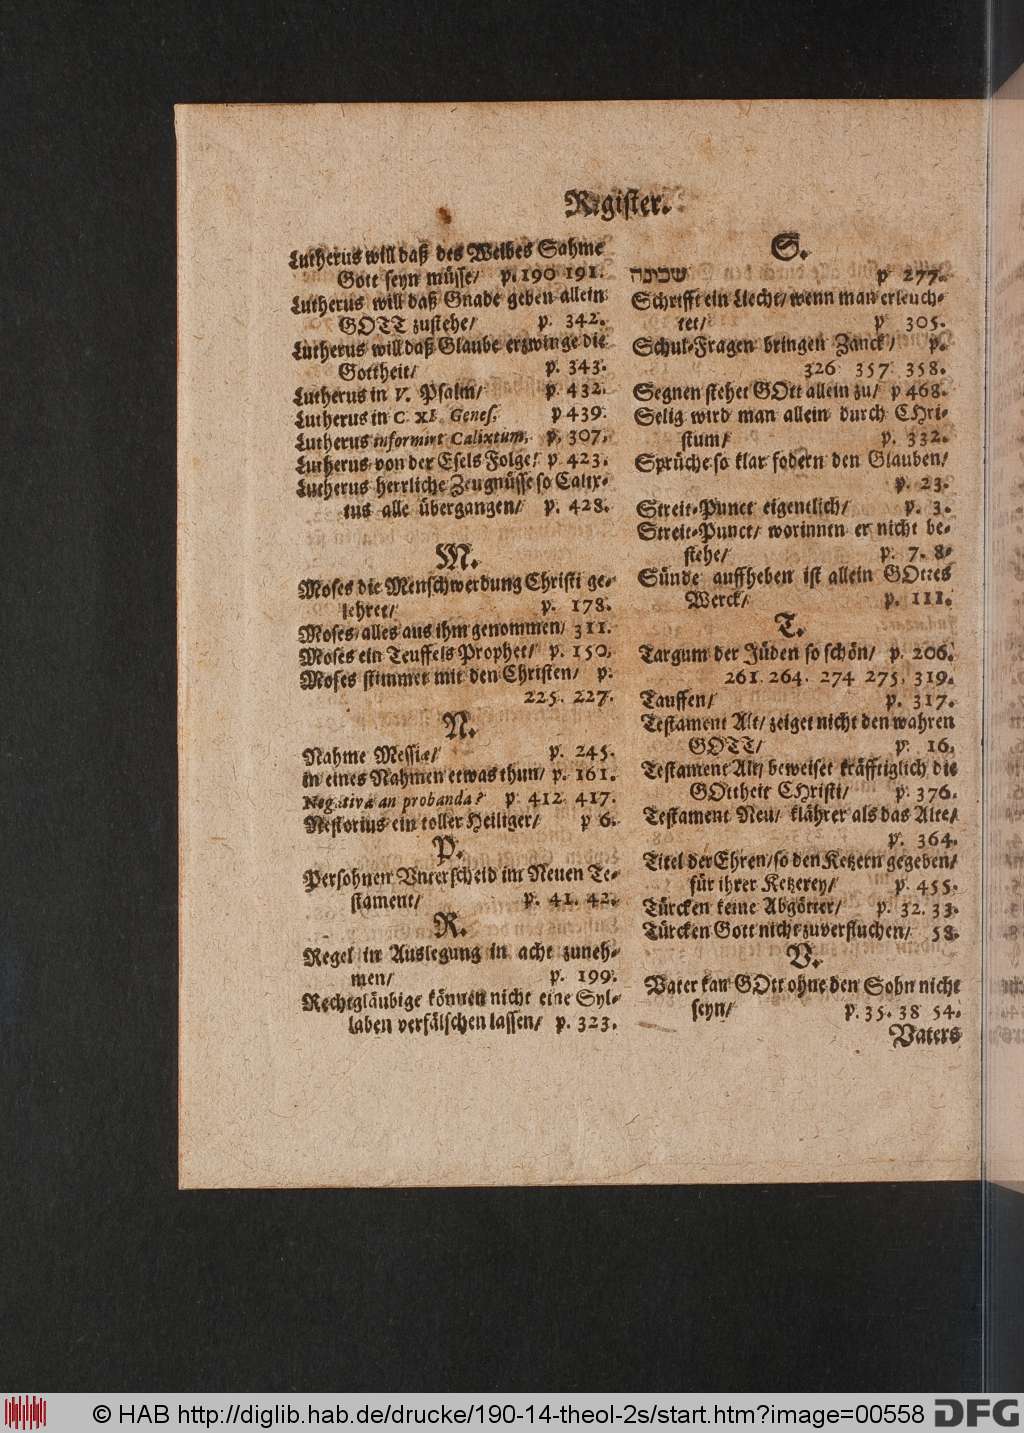 Register.
Lutherus will daß des Weibes Sahme
Gott seyn müsse/ p. 190 191.
Lutherus will daß Gnade geben allein
GOTT zustehe/ p. 342.
Lutherus will daß Glaube erzwinge die
Gottheit/ p. 343.
Lutherus in V. Psalm/ p. 432.
Lutherus in C. XI. Genes. p 439.
Lutherus informirt Calixtum. p. 307.
Lutherus von der Esels Folge/ p. 423.
Lutherus herrliche Zeugnüsse so Calix-
tus alle übergangen/ p. 428.
M.
Moses die Menschwerdung Christi ge-
lehret/ p. 178.
Moses/ alles aus ihm genommen/ 311.
Moses ein Teuffels Prophet/ p. 150.
Moses stimmet mit den Christen/ p.
225. 227.
N.
Nahme Messiæ/ p. 245.
in eines Nahmen etwas thun/ p. 161.
Negativa an probanda? p. 412. 417.
Nestorius ein toller Heiliger/ p 6.
P.
Persohnen Vnterscheid im Neuen Te-
stament/ p. 41. 42.
R.
Regel in Auslegung in acht zuneh-
men/ p. 199.
Rechtgläubige können nicht eine Syl-
laben verfälschen lassen/ p. 323.
S.
שכינה p 277.
Schrifft ein Liecht/ wenn man erleuch-
tet/ p 305.
Schul-Fragen bringen Zanck/ p.
326 357 358.
Segnen stehet GOtt allein zu/ p 468.
Selig wird man allein durch CHri-
stum/ p. 332.
Sprüche so klar fodern den Glauben/
p. 23.
Streit-Punct eigentlich/ p. 3.
Streit-Punct/ worinnen er nicht be-
stehe/ p. 7. 8.
Sünde auffheben ist allein GOttes
Werck/ p. 111.
T.
Targum der Jüden so schön/ p. 206.
261. 264. 274 275. 319.
Tauffen/ p. 317.
Testament Alt/ zeiget nicht den wahren
GOTT/ p. 16.
Testament Alt/ beweiset kräfftiglich die
GOttheit CHristi/ p. 376.
Testament Neu/ klährer als das Alte/
p. 364.
Titel der Ehren/ so den Ketzern gegeben/
für ihrer Ketzerey/ p. 455.
Türcken keine Abgötter/ p. 32. 33.
Türcken Gott nicht zuverfluchen/ 58.
V.
Vater kan GOtt ohne den Sohn nicht
seyn/ p. 35. 38 54.
Vaters
© HAB http://diglib.hab.de/drucke/190-14-theol-2s/start.htm?image=00558 DFG